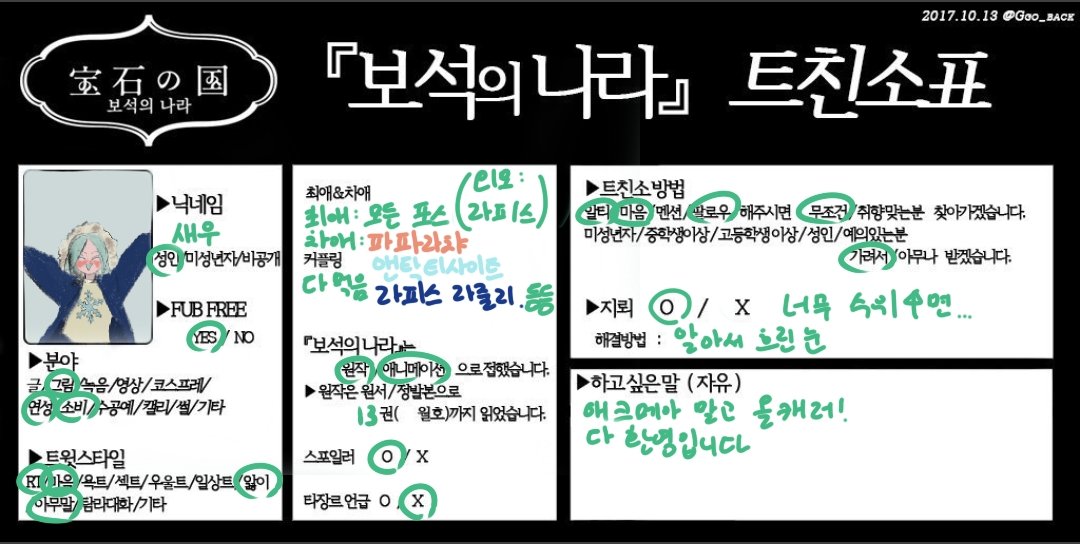 2017.10.13 @Ggo_back
宝石の国
보석의 나라
『보석의 나라』 트친소표
▶닉네임
새우
성인/미성년자/비공개
▶FUB FREE
YES / NO
▶분야
글/그림/녹음/영상/코스프레/
연성/소비/수공예/캘리/썰/기타
▶트윗스타일
RT/마음/욕트/섹트/우울트/일상트/앓이
아무말/탐라대화/기타
최애&차애
최애: 모든 포스 (리모: 라피스)
차애: 파파라챠
앤탁티사이트
라피스 라줄리. 등등
커플링
다 먹음
『보석의 나라』는
원작/애니메이션 으로 접했습니다.
▶원작은 원서/정발본으로
13권( 월호)까지 읽었습니다.
스포일러 O / X
타장르 언급 O / X
▶트친소 방법
알티/마음/멘션/팔로우 해주시면 무조건/취향맞는분 찾아가겠습니다.
미성년자/중학생이상/고등학생이상/성인/예의있는분
가려서/아무나 받겠습니다.
▶지뢰 O / X 너무 수위쎄면...
해결방법 : 알아서 흐린 눈
▶하고싶은말 (자유)
애크메아 말고 올캐러!
다 환영입니다